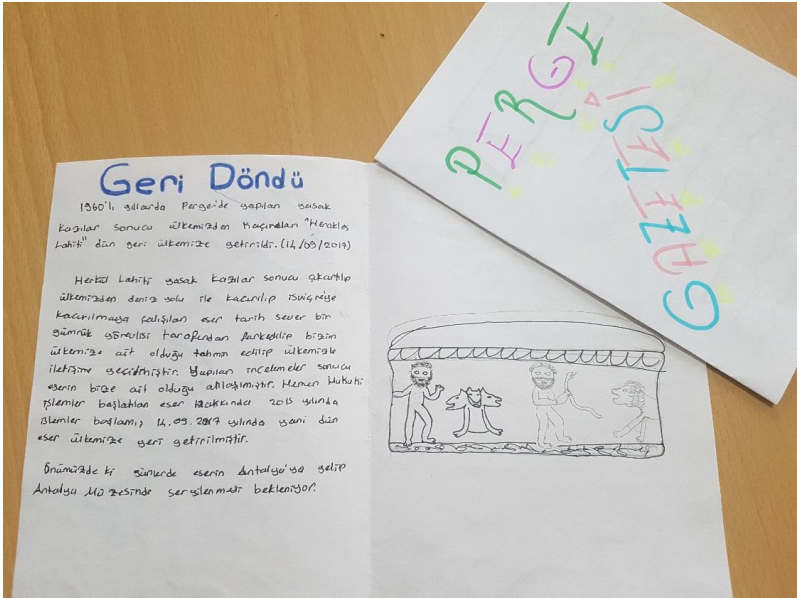 PERGE
GAZETESİ
Geri Döndü
1960'lı yıllarda Perge'de yapılan yasak
kazılar sonucu ülkemizden kaçırılan "Herakles
Lahiti" dün geri ülkemize getirildi. (14/09/2017)
Herkül Lahiti yasak kazılar sonucu çıkartılıp
ülkemizden deniz yolu ile kaçırılıp isviçre'ye
kaçırılmaya çalışılan eser tarih sever bir
gümrük görevlisi tarafından farkedilip bizim
ülkemize ait olduğu tahmin edilip ülkemizle
iletişime geçilmiştir. Yapılan incelemeler sonucu
eserin bize ait olduğu anlaşılmıştır. Hemen Hukuki
işlemler başlatılan eser Hakkında 2015 yılında
işlemler başlamış, 14.09.2017 yılında yani dün
eser ülkemize geri getirilmiştir.
Önümüzdeki günlerde eserin Antalya'ya gelip
Antalya Müzesinde sergilenmesi bekleniyor.